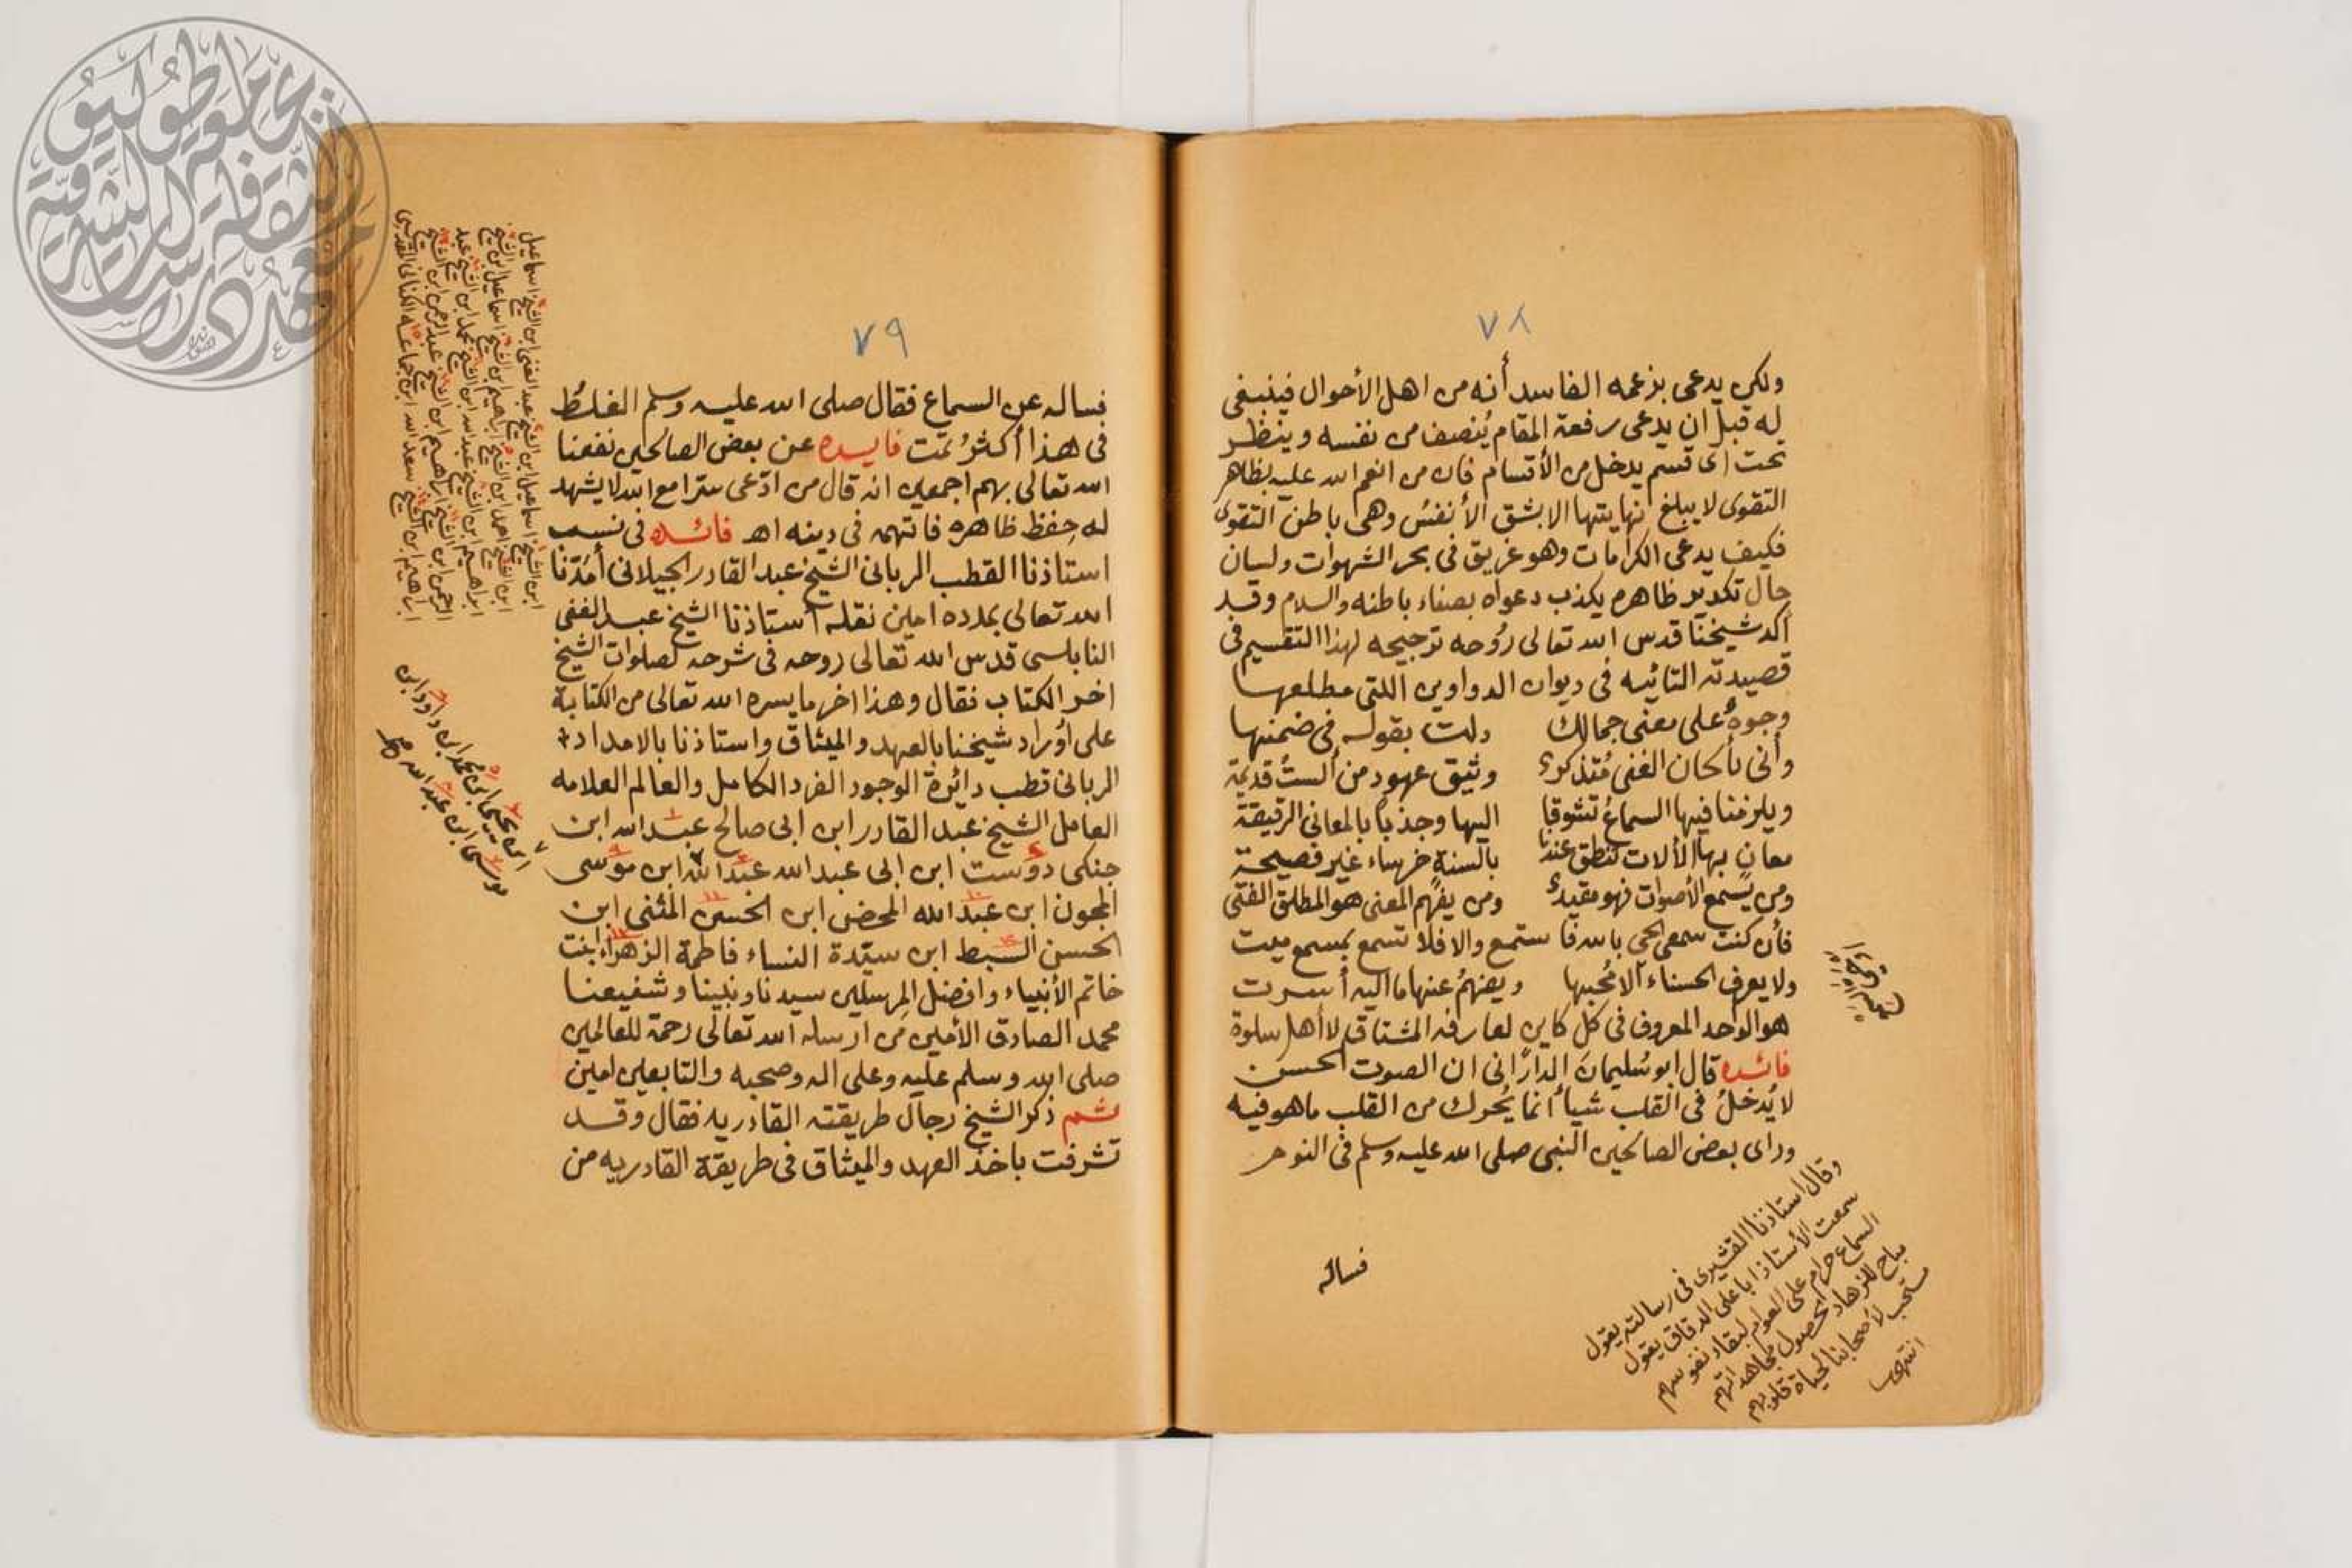 ٧٨
ولكن يدعى بزعمه الفاسد أنه من اهل الأحوال فينبغى
له قبل ان يدعى رفعة المقام يُنصف من نفسه وينظر
تحت اى قسم يدخل من الأقسام فان من انعم الله عليه بظاهر
التقوى لا يبلغ نهايتها الا بشق الأنفسُ وهى باطن التقوى
فكيف يدعى الكرامات وهو غريق فى بحر الشهوات ولسان
حال تكدير ظاهره يكذب دعواه بصفاء باطنه والسلام وقد
أكد شيخنا قدس الله تعالى رُوحه ترجيحه لهذا التقسيم فى
قصيدته التائيه فى ديوان الدواوين اللتى مطلعها
وجوهُ على معنى جمالك دلت بقوله فى ضمنها
وأنى بألحان الغنى مُتذكرُ وثيق عهود من ألستُ قديمة
ويلزمنا فيها السماعُ تشوقا اليها وجذباً بالمعانى الرقيقة
معانٍ بها الألات تنطق عندنا بألسنةٍ خرساء غير فصيحة
ومن يسمع الأصوات فهو مقيدُ ومن يفهم المعنى هو المطلق الفتى
فأن كنت سمعى الحى بالله فاستمع والا فلا تسمع بمسمع ميت
ولا يعرف الحسناء الا مُحبها ويفهمُ عنها ما اليه أسرت
هو الواحد المعروف فى كل كاين لعارفه المشتاق لا أهل سلوة
فائده قال ابو سُليمان الدارانى ان الصوت الحسن
لا يُدخلُ فى القلب شيأ انما يُحرك من القلب ما هو فيه
وراى بعض الصالحين النبى صلى الله عليه وسلم فى النوم
وقال استاذنا القشيرى فى رسالته يقول
سمعت الأستاذ ابا على الدقاق يقول
السماع حرام على العوام لبقاء نفوسهم
مباح للزهاد لحصول مجاهداتهم
مستحب لأصحابنا لحياة قلوبهم
انتهى
فساله
٧٩
فساله عن السماع فقال صلى الله عليه وسلم الغلطُ
فى هذا أكثرُ تمت فايده عن بعض الصالحين نفعنا
الله تعالى بهم اجمعين انه قال من ادّعى سترا مع الله لا يشهد
له حِفظ ظاهره فاتهمه فى دينه اهـ فائده فى نسب
استاذنا القطب الربانى الشيخ عبد القادر الجيلانى أمدّنا
الله تعالى بمدده امين نقله أستاذنا الشيخ عبد الغنى
النابلسى قدس الله تعالى روحه فى شرحه لصلوات الشيخ
اخر الكتاب فقال وهذا اخر ما يسره الله تعالى من الكتابة
على أوراد شيخنا بالعهد والميثاق واستاذنا بالامداد
الربانى قطب دائرة الوجود الفرد الكامل والعالم العلامه
العامل الشيخ عبد القادر ابن ابى صالح عبد الله ابن
جنكى دوست ابن ابى عبد الله عبد الله ابن موسى
الجون ابن عبد الله المحض ابن الحسن المثنى ابن
الحسن السبط ابن سيّدة النساء فاطمة الزهراء بنت
خاتم الأنبياء وافضل المرسلين سيدنا ونبينا وشفيعنا
محمد الصادق الأمين من ارسله الله تعالى رحمة للعالمين
صلى الله وسلم عليه وعلى اله وصحبه والتابعين امين
ثم ذكر الشيخ رجال طريقته القادريه فقال وقد
تشرفت باخذ العهد والميثاق فى طريقة القادريه من
ابن الشيخ اسماعيل ابن الشيخ عبد الغنى ابن الشيخ اسماعيل
ابن الشيخ احمد ابن الشيخ ابراهيم ابن الشيخ اسماعيل ابن الشيخ
ابراهيم ابن الشيخ عبد الله ابن الشيخ محمد ابن الشيخ عبد
الرحمن ابن الشيخ ابراهيم ابن الشيخ عبد الرحمن ابن الشيخ
ابراهيم ابن الشيخ سعد الله ابن جماعه الكنانى القدسى
ابن يحيى ابن محمد ابن داوود ابن
موسى ابن عبد الله